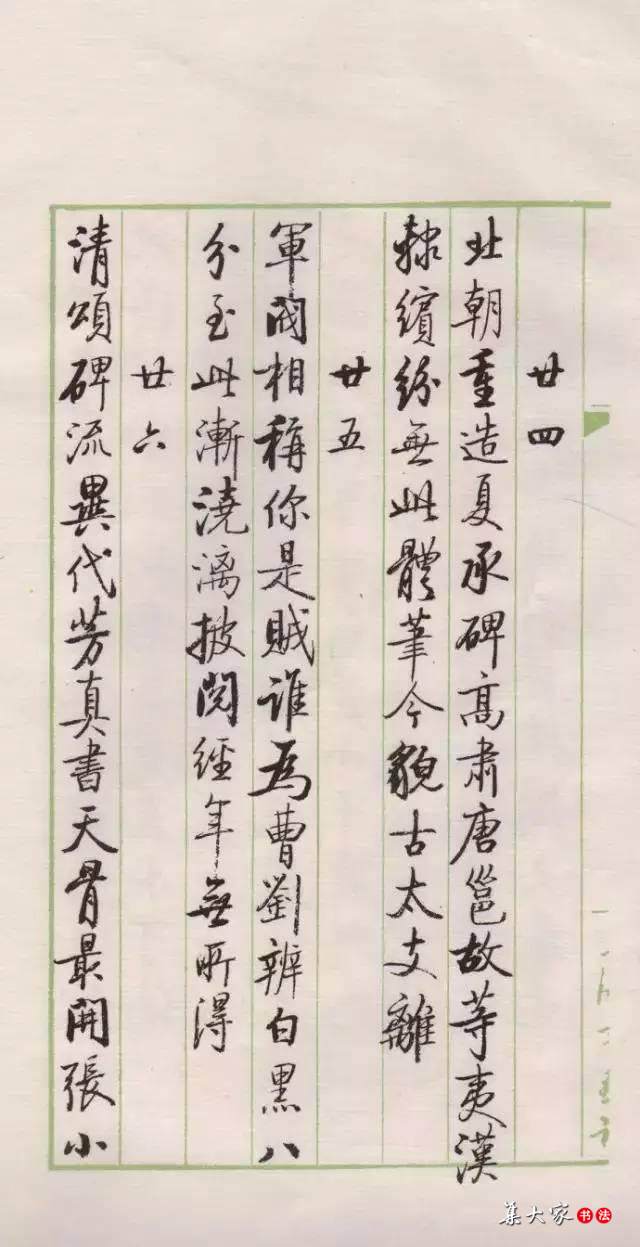 廿四
北朝重造夏承碑高肅唐邕故等夷漢
隸繽紛無此體筆今貌古太支離
廿五
軍閥相稱你是賊誰爲曹劉辨白黑八
分至此漸澆漓披閱經年無所得
廿六
清頌碑流異代芳真書天骨最開張小
集大家书法